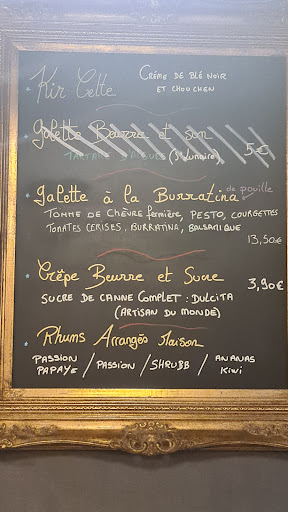 Kir Celte
Crème de blé noir
et chouchen
Galette Beurre et son
Tartare d'algues (St Lunaire) 5€
Galette à la Burratina de pouille
Tomme de chèvre fermière, pesto, courgettes
Tomates cerises, burratina, balsamique
13,50€
Crêpe Beurre et Sucre 3,90€
Sucre de canne complet : Dulcita
(Artisan du monde)
Rhums Arrangés Maison
Passion / Passion / Shrubb / Ananas
Papaye Kiwi